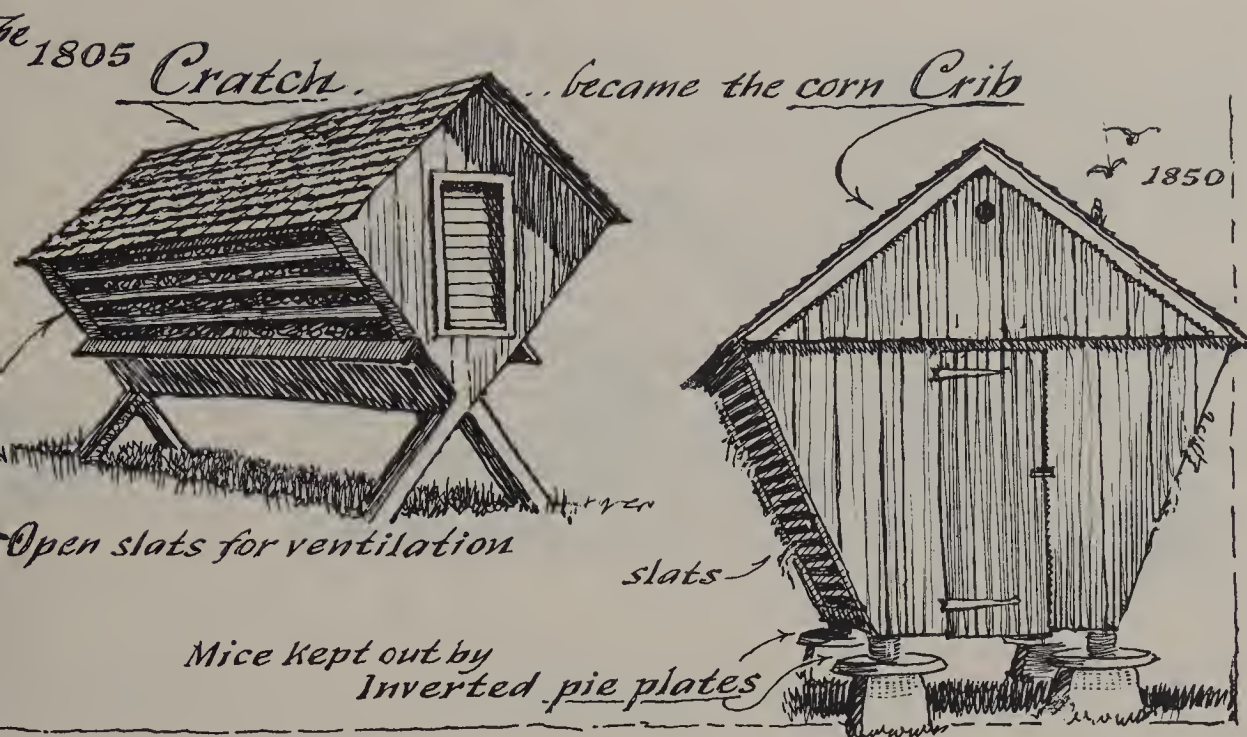 The 1805 Cratch. . . . became the corn Crib
1850
Open slats for ventilation
slats
Mice kept out by
Inverted pie plates